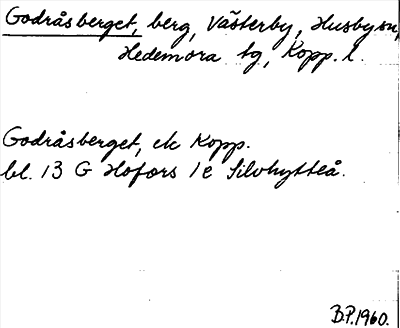 Godråsberget, berg, Västerby, Husby sn,
Hedemora tg, Kopp. l.
Godråsberget, ek Kopp.
bl. 13 G Hofors 1 e Silvhytteå.
B.P. 1960.